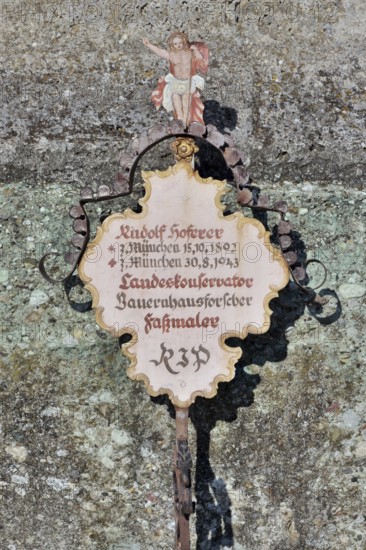 Rudolf Hoferer
* z. München 15.10.1892
† z. München 30.8.1943
Landeskonservator
Bauernhausforscher
Faßmaler
RIP